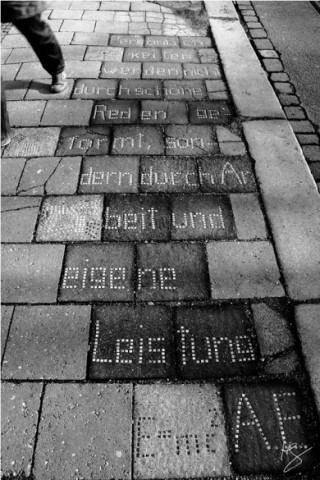 Persönlich
keiten
werden nicht
durch schöne
Reden ge-
formt, son-
dern durch Ar
beit und
eigene
Leistung
E=mc² A.E.